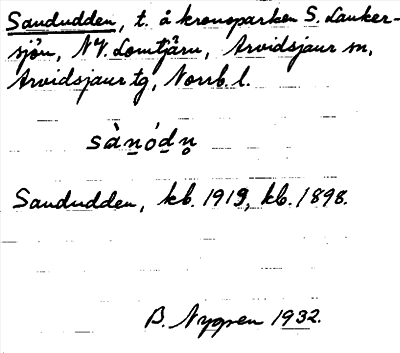 Sandudden, t. å kronoparken S. Lauker-
sjön, NV. Lomtjärn, Arvidsjaur sn,
Arvidsjaur tg, Norrb. l.
sànọ́dn̥
Sandudden, kb. 1919, kb. 1898.
B. Nygren 1932.